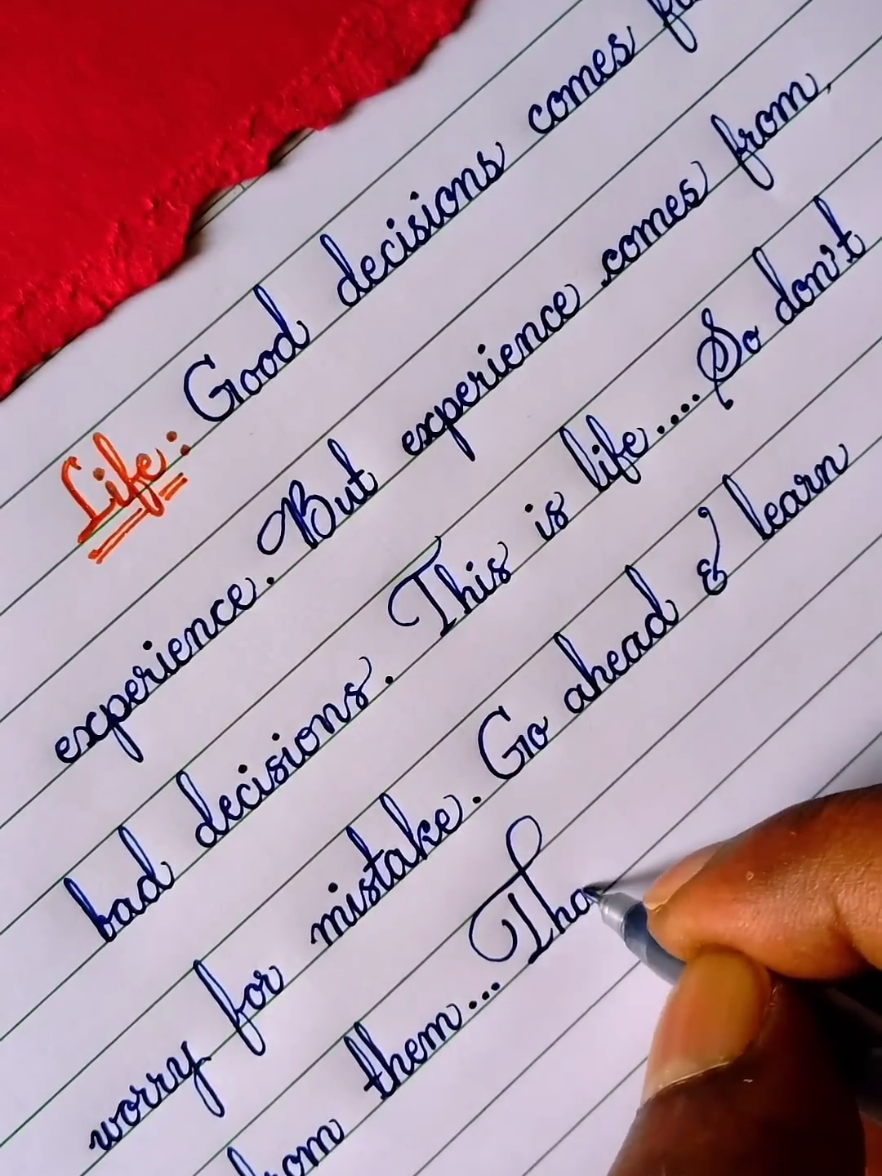 Life: Good decisions comes
experience. But experience comes from,
bad decisions. This is life.... So don't
worry for mistake. Go ahead & learn
them... Tha